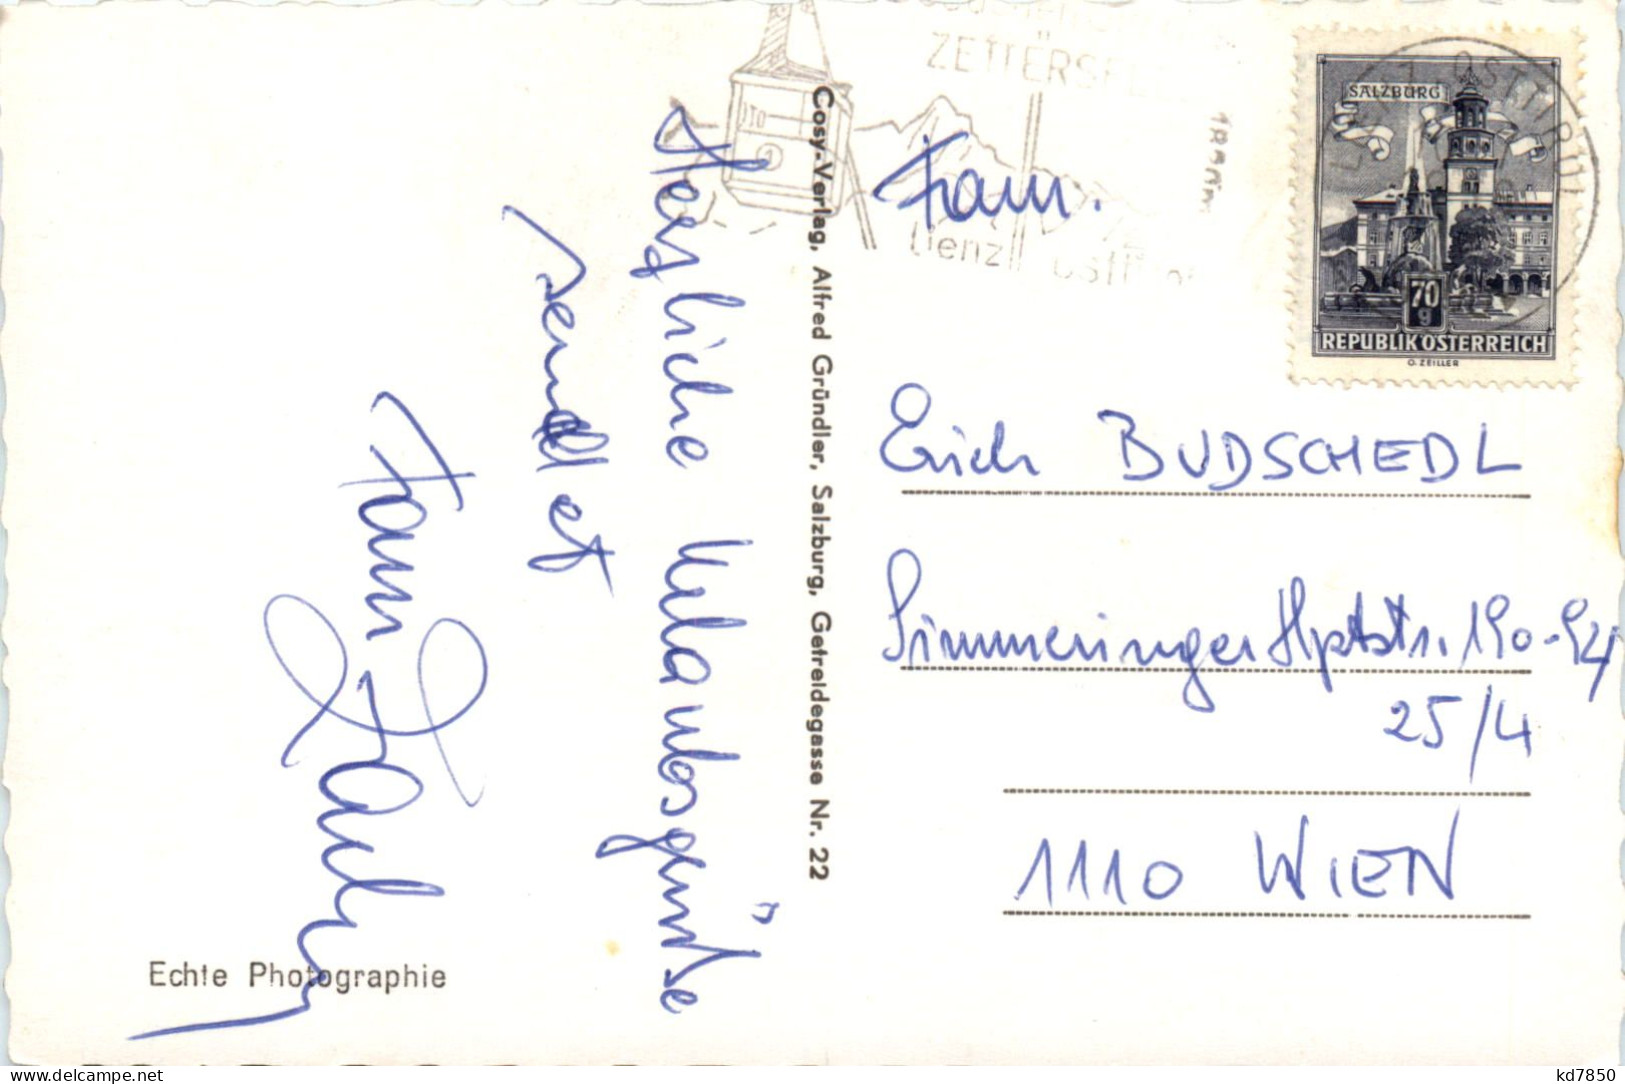 ZETTERSFELD
1880m
Lienz Osttirol
OSTTIROL
SALZBURG
70
g
REPUBLIK ÖSTERREICH
O. ZEILLER
Herzliche Urlaubsgrüße
sendet
Fam.
Cosy-Verlag, Alfred Gründler, Salzburg, Getreidegasse Nr. 22
Fam.
Erich BUDSCHEDL
Simmeringer Hptstr. 190-94
25/4
1110 WIEN
Echte Photographie
delcampe.net
kd7850